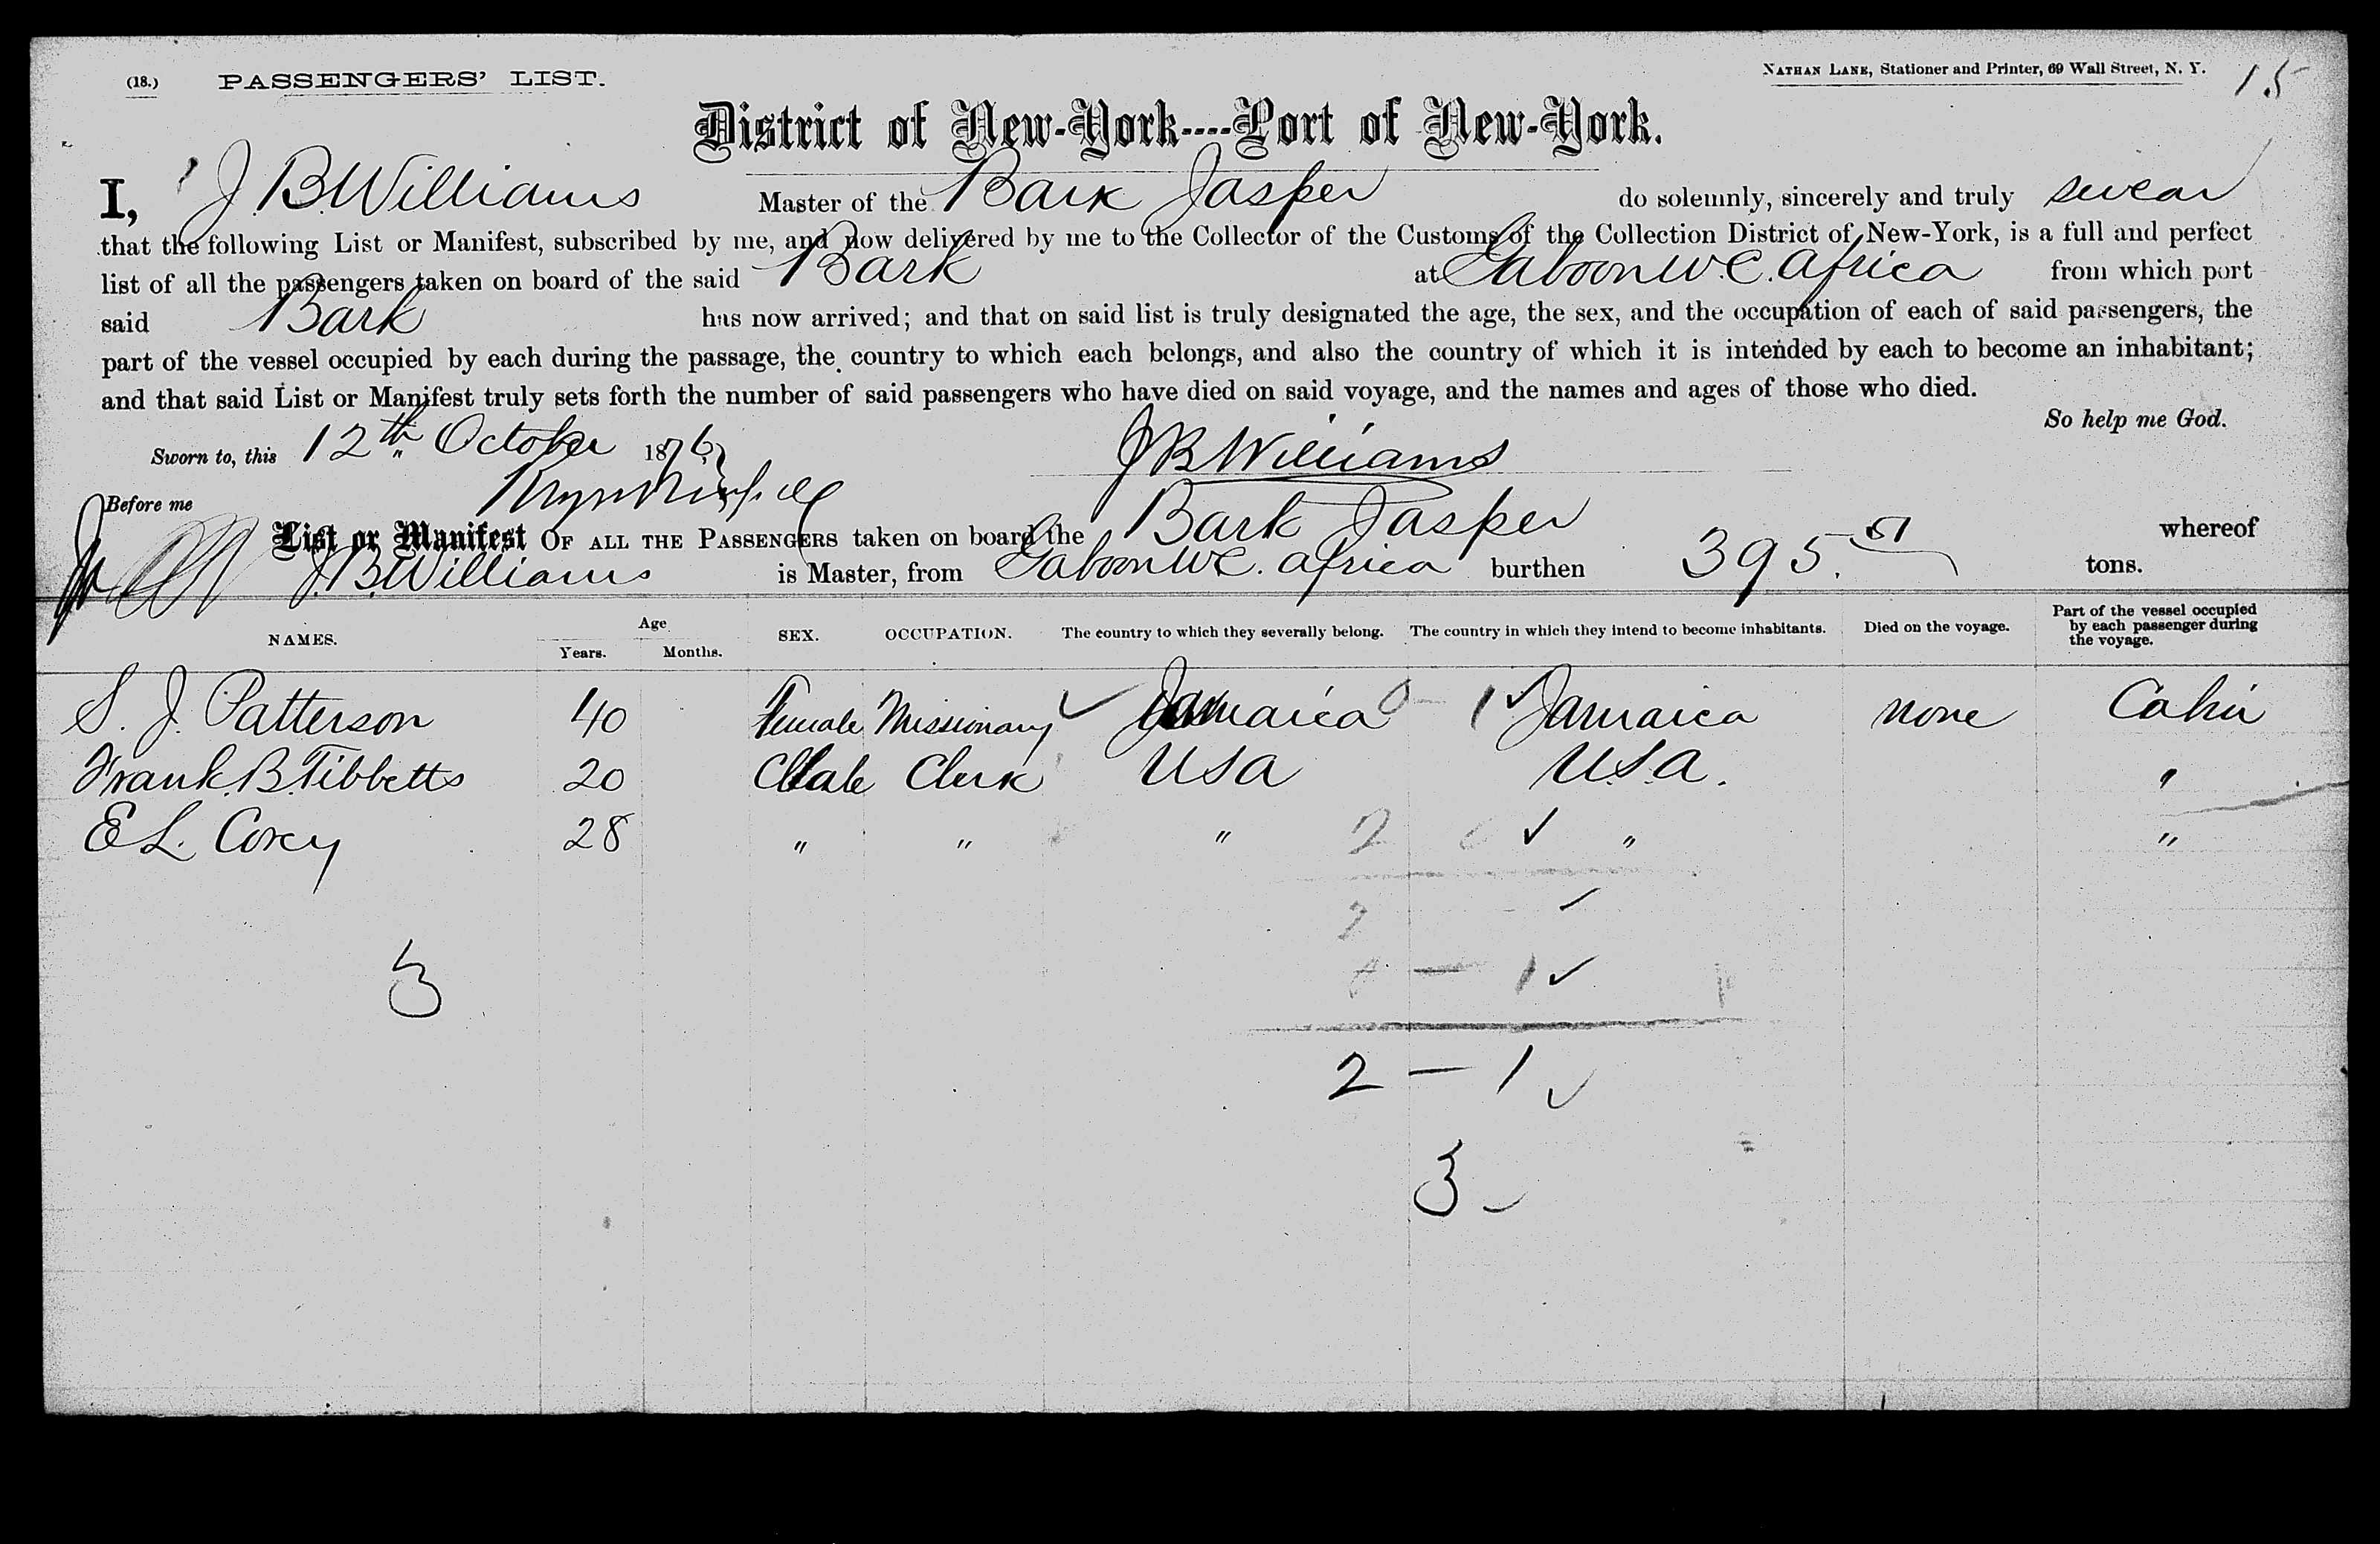 (18.) PASSENGERS' LIST. NATHAN LANE, Stationer and Printer, 69 Wall Street, N. Y. 15
District of New-York----Port of New-York.
I, J. B. Williams Master of the Bark Jasper do solemnly, sincerely and truly swear
that the following List or Manifest, subscribed by me, and now delivered by me to the Collector of the Customs of the Collection District of New-York, is a full and perfect
list of all the passengers taken on board of the said Bark at Gaboon W. C. Africa from which port
said Bark has now arrived; and that on said list is truly designated the age, the sex, and the occupation of each of said passengers, the
part of the vessel occupied by each during the passage, the country to which each belongs, and also the country of which it is intended by each to become an inhabitant;
and that said List or Manifest truly sets forth the number of said passengers who have died on said voyage, and the names and ages of those who died.
So help me God.
Sworn to, this 12th October 1876 J B Williams
Before me
List or Manifest OF ALL THE PASSENGERS taken on board the Bark Jasper whereof
J. B. Williams is Master, from Gaboon W C. Africa burthen 395. 51 tons.
NAMES. Age Years. Months. SEX. OCCUPATION. The country to which they severally belong. The country in which they intend to become inhabitants. Died on the voyage. Part of the vessel occupied by each passenger during the voyage.
S. J. Patterson 40 Female Missionary ✓ Jamaica 0 - 1 ✓ Jamaica none Cabin
Frank. B. Tibbetts 20 Male Clerk USA U.S.A. "
E L. Corey 28 " " " 2 ✓ " "
3
2 — 1 ✓
3